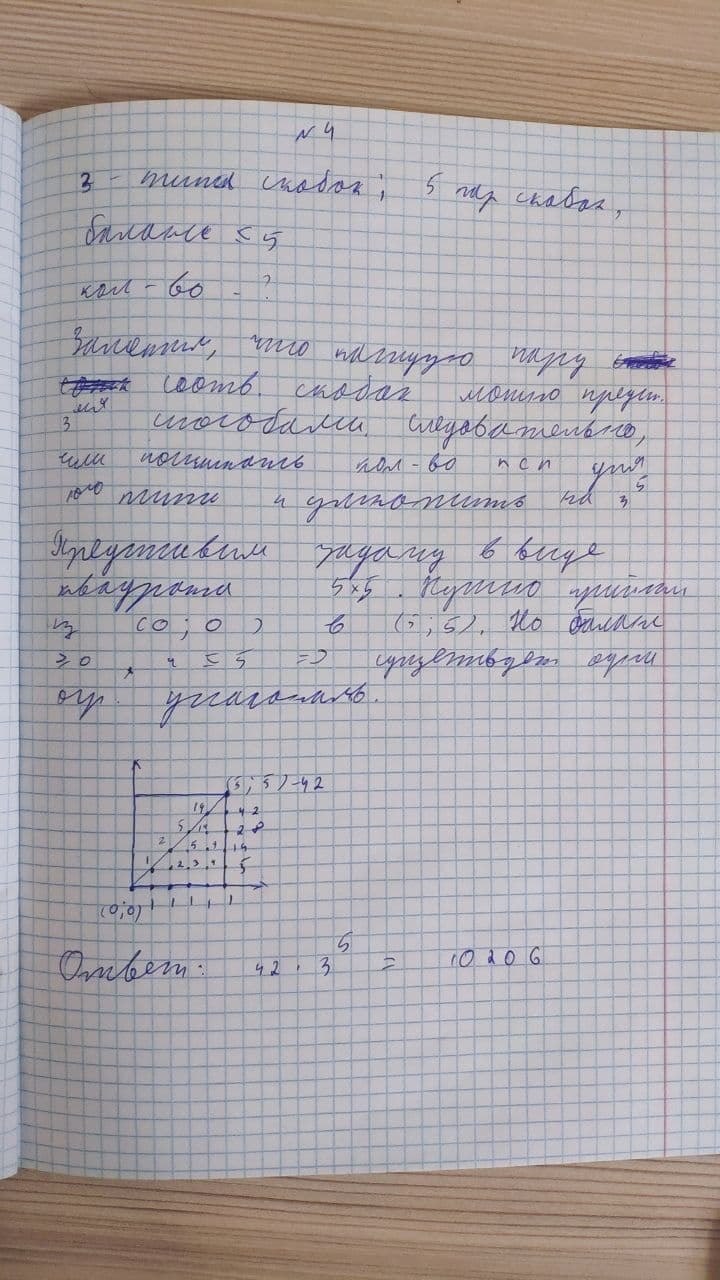 №4
3 - типа скобок; 5 пар скобок,
баланс ≤ 5
кол-во - ?
Заметим, что каждую пару
соотв. скобок можно предст.
3мя способами. Следовательно,
посчитать кол-во псп для
1ого типа и умножить на 3^5
Представим задачу в виде
квадрата 5×5. Нужно прийти
из (0;0) в (5;5). Но баланс
≥0, и ≤5 => существует одни
огр.
(5;5)-42
14 42
5 14 28
2 5 9 14
1 2 3 4 5
(0;0) 1 1 1 1 1
Ответ: 42 · 3^5 = 10206